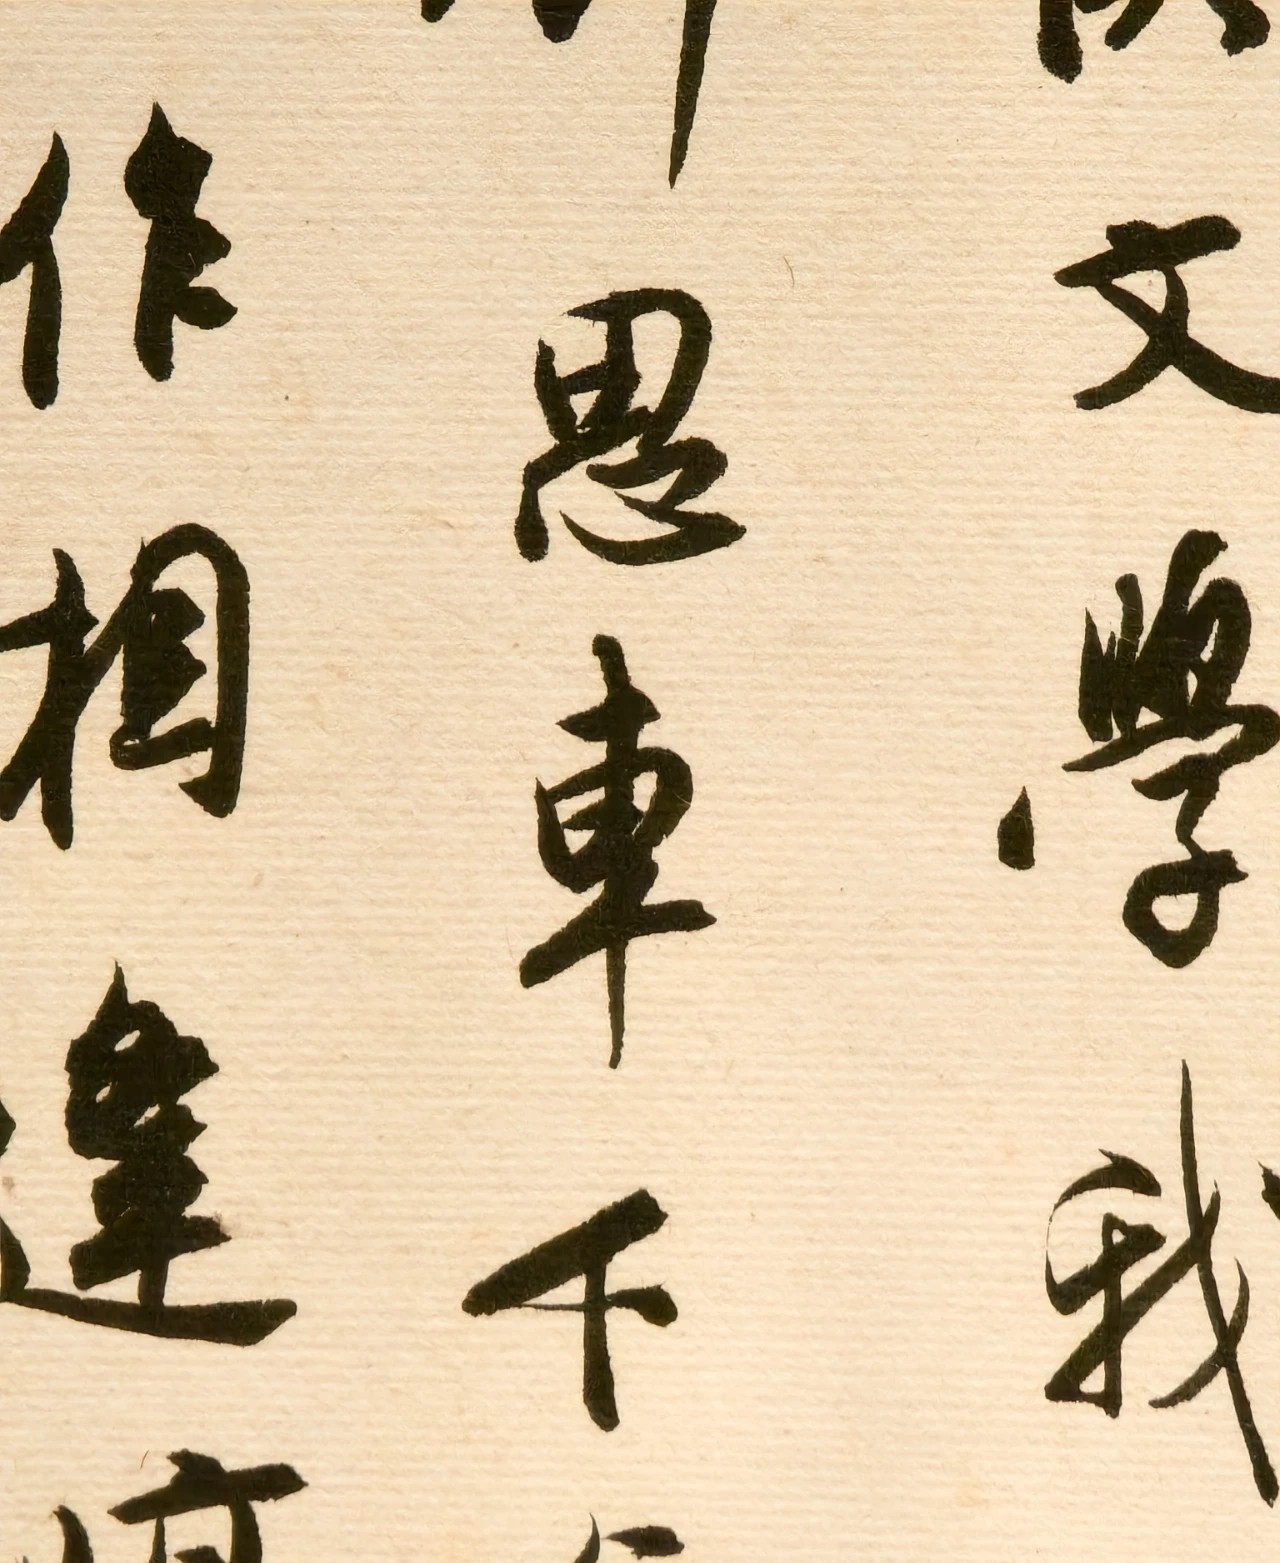 文學我
思車下
作相逢